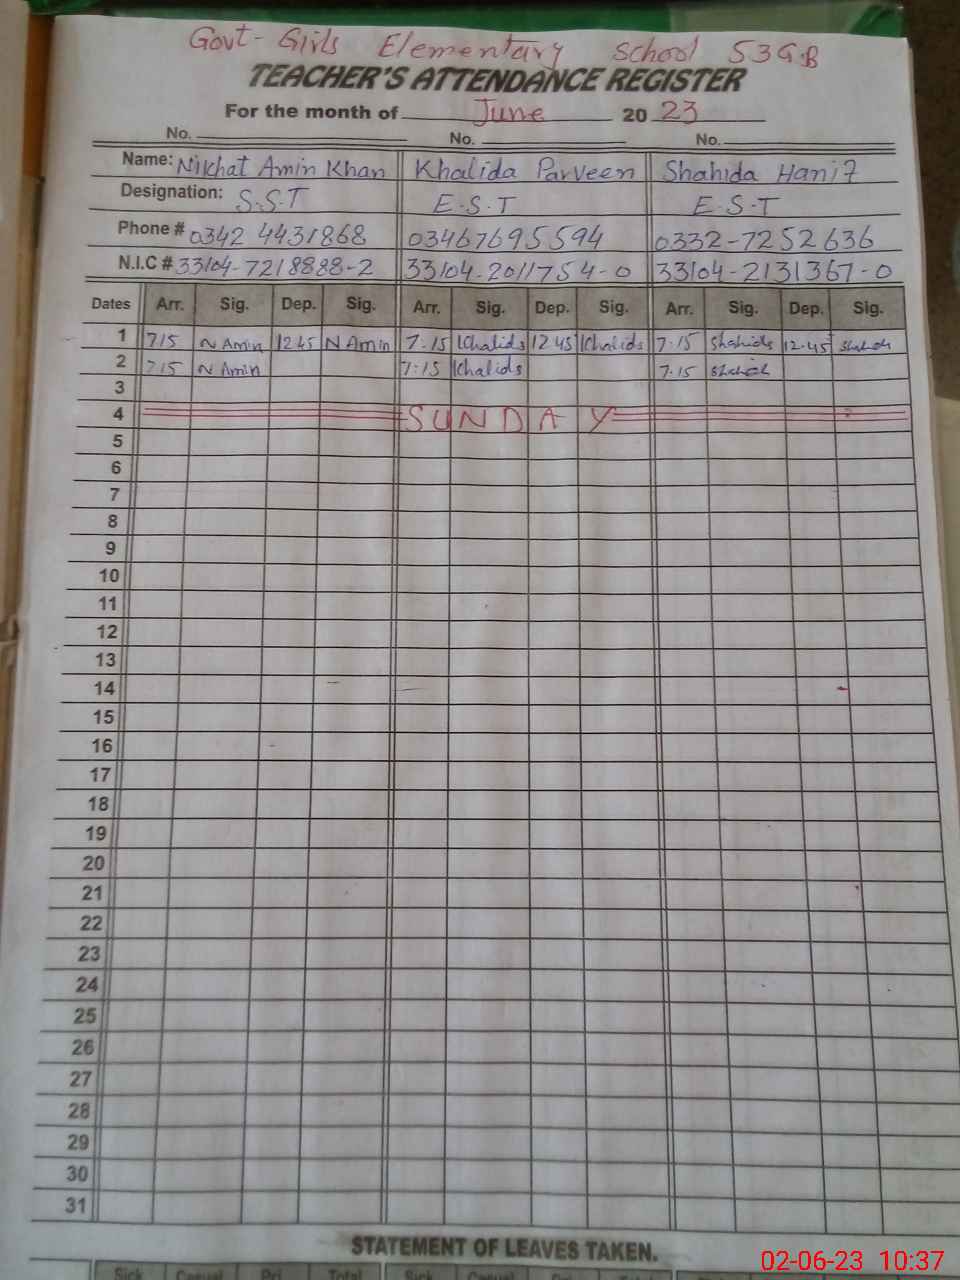 Govt- Girls Elementary School 53 G.B
TEACHER'S ATTENDANCE REGISTER
For the month of June 20 23
No. No. No.
Name: Nikhat Amin Khan Khalida Parveen Shahida Hanif
Designation: S.S.T E.S.T E.S.T
Phone # 0342 4431868 03467695594 0332-7252636
N.I.C # 33104-7218888-2 33104-2011754-0 33104-2131367-0
Dates Arr. Sig. Dep. Sig. Arr. Sig. Dep. Sig. Arr. Sig. Dep. Sig.
1 715 N Amin 1245 N Amin 7.15 Khalida 12 45 Khalida 7.15 Shahida 12.45 Shahida
2 715 N Amin 7:15 Khalida 7.15
3
4 SUNDAY
5
6
7
8
9
10
11
12
13
14
15
16
17
18
19
20
21
22
23
24
25
26
27
28
29
30
31
STATEMENT OF LEAVES TAKEN.
Sick Casual Pri. Total Sick Casual
02-06-23 10:37